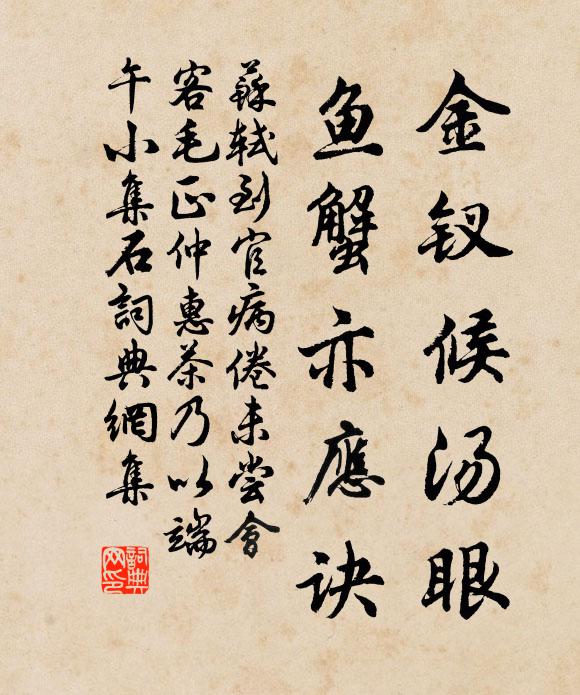 金钗候汤眼
鱼蟹亦應诀
蘇軾到官病倦未尝會
客毛正仲惠茶乃以端
午小集石詞典網集
詞典网印